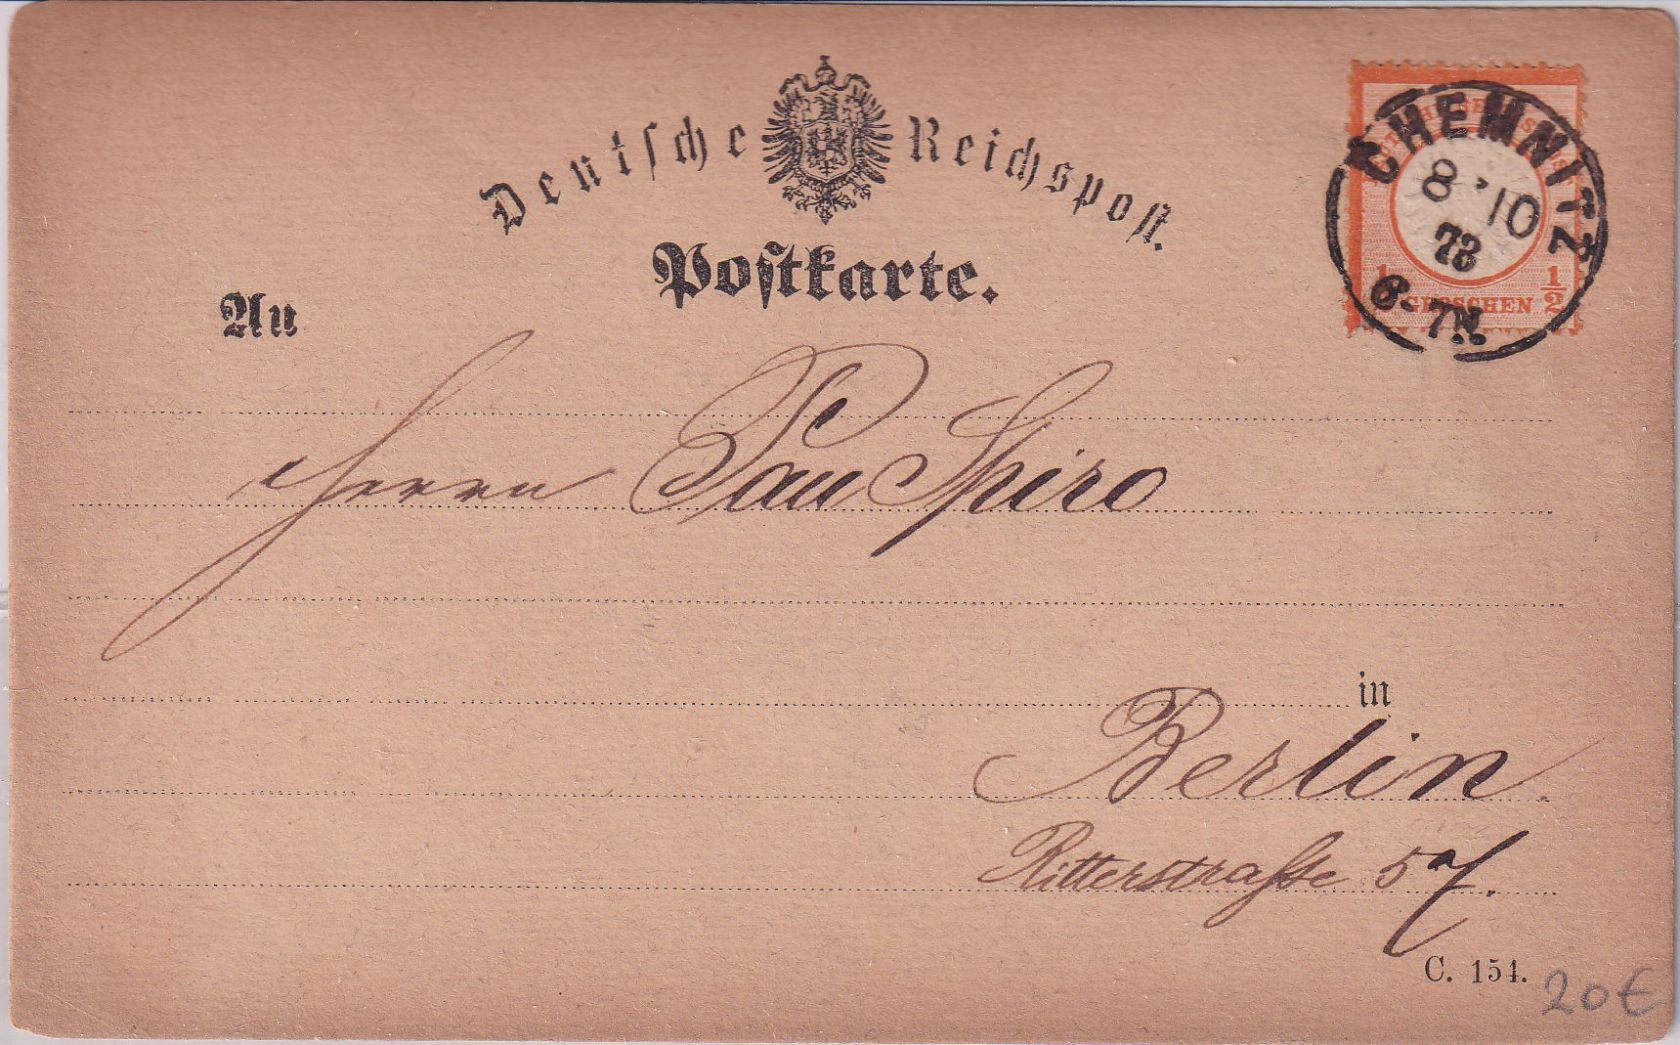 Deutsche Reichspost.
Postkarte.
CHEMNITZ
8 10
73
6-7N.
1/2 GROSCHEN 1/2
An
Herrn Paul Spiro
in
Berlin.
Ritterstraſse 57.
C. 154.
20€